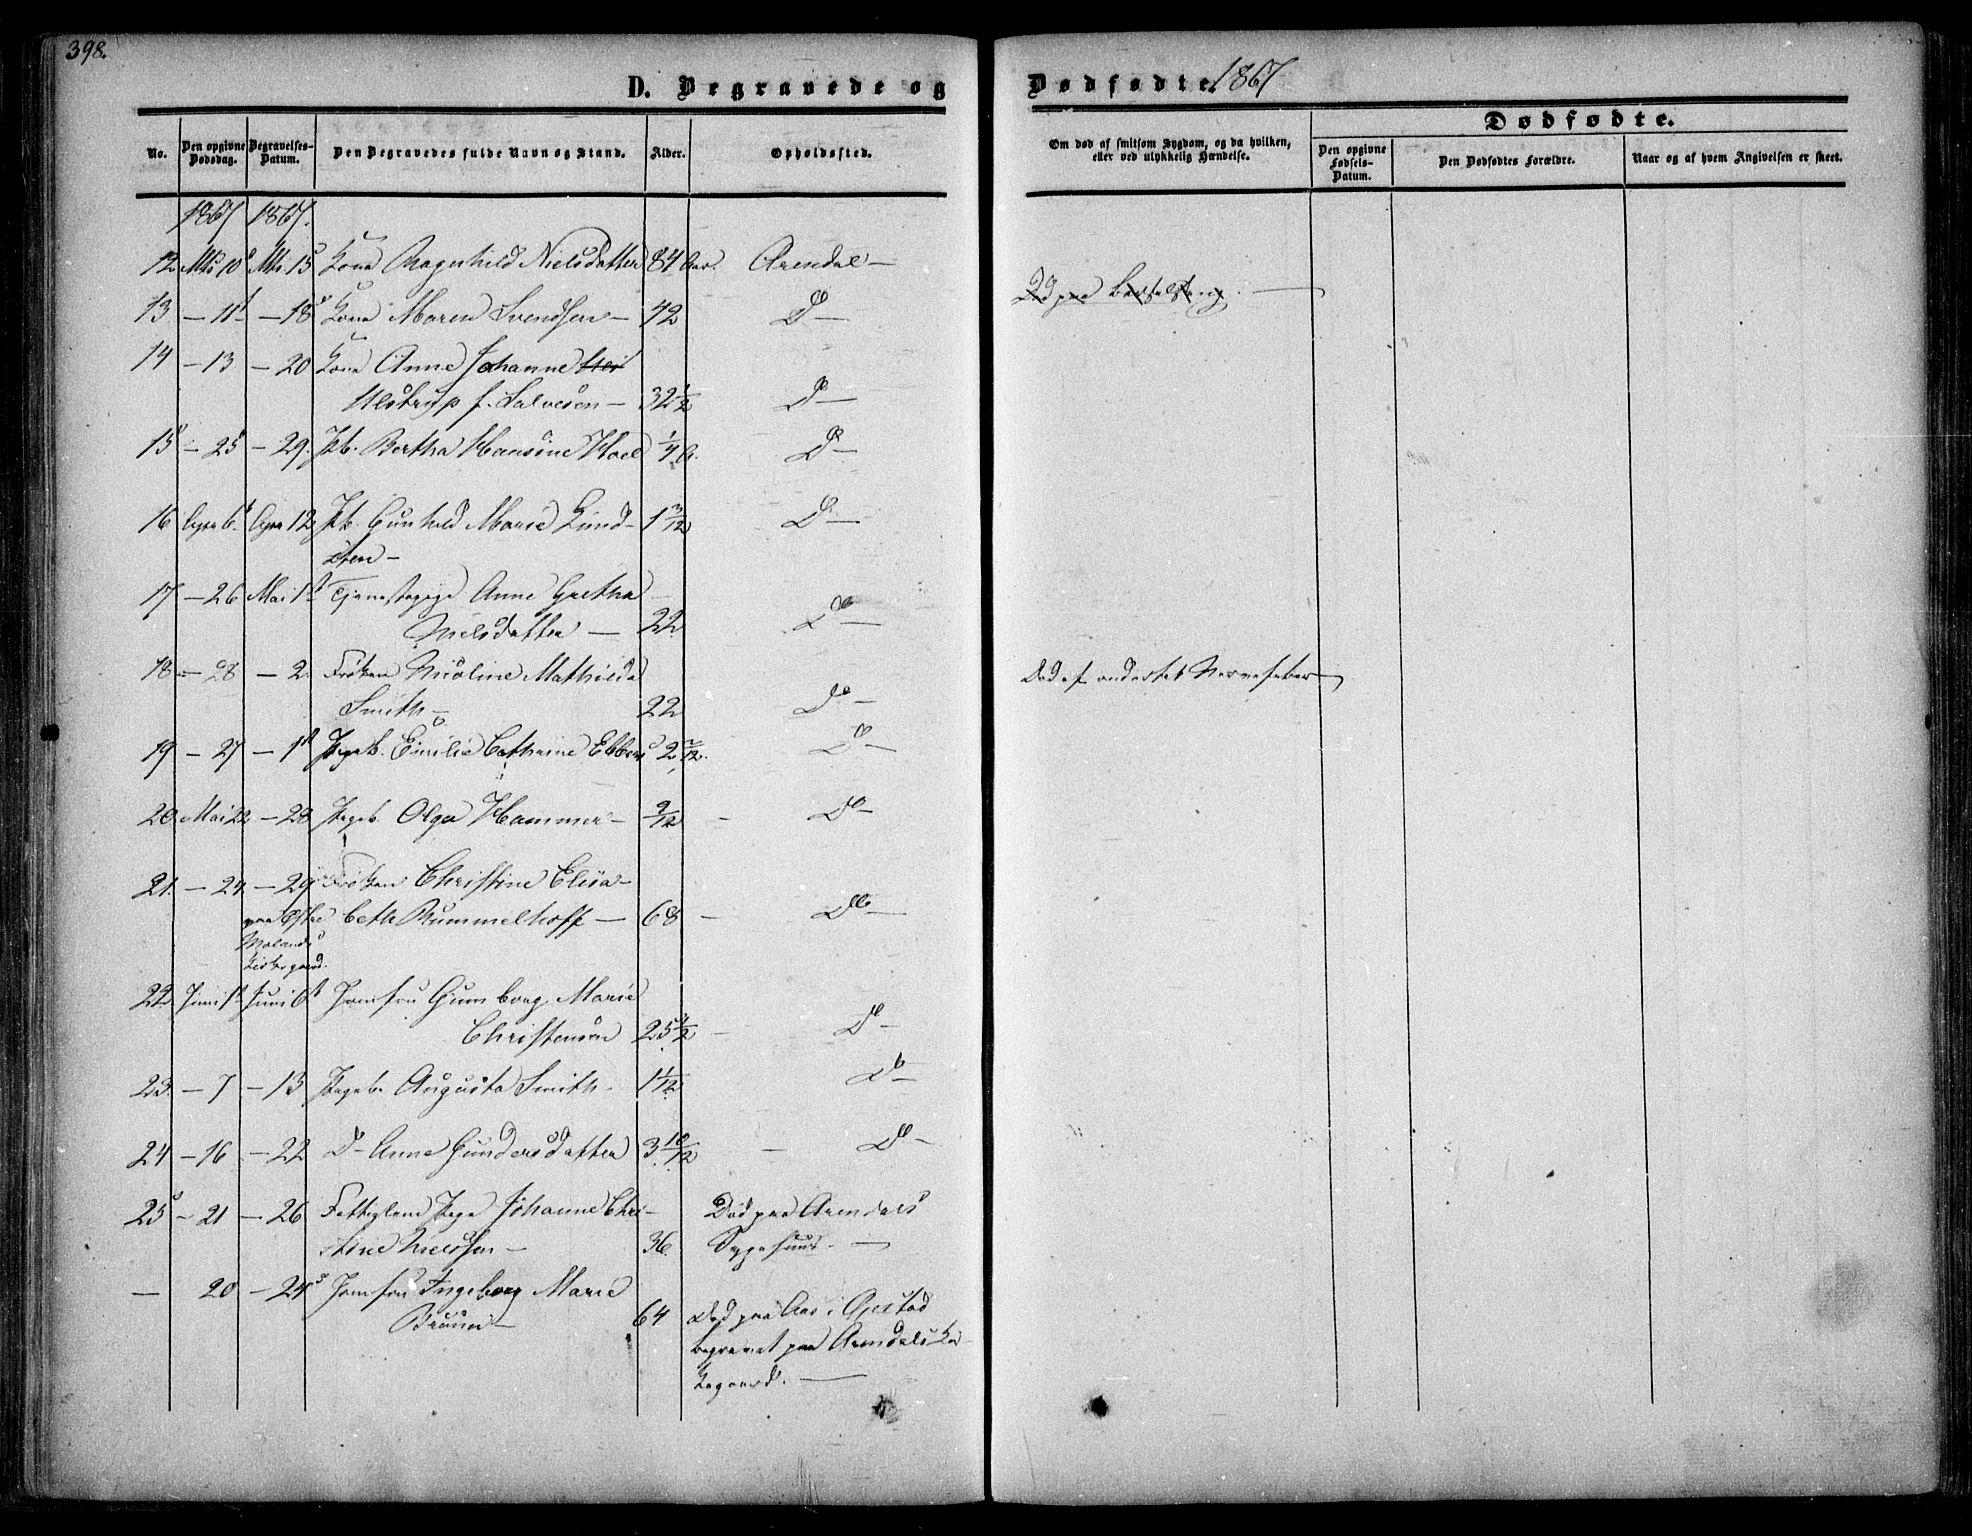 398.
D. Begravede og
Dødfødte. 1867
No.
Den opgivne Dødsdag.
Begravelses-Datum.
Den Begravedes fulde Navn og Stand.
Alder.
Opholdssted.
Om død af smitsom Sygdom, og da hvilken, eller ved ulykkelig Hændelse.
Dødfødte.
Den opgivne Fødsels-Datum.
Den Dødfødtes Forældre.
Naar og af hvem Angivelsen er skeet.
1867 1867.
12 Mts 10 Mts 15 Kone Ragnhild Nielsdatter 84 Aar. Arendal —
13 — 11 — 18 Kone Maren Svendsen — 42 Do — Død paa Barselseng. —
14 — 13 — 20 Kone Anne Johanne
Ulstrup f. Salvesen — 32 1/2 Do —
15 — 25 — 29. Pb. Bertha Hansine Hoel 1/4 A. Do —
16 Apr 6 Apr 12 Pb. Gunhild Marie Lund- 1 3/12 Do —
sten —
17 — 26 Mai 1st Tjenestepige Anne Grethe
Nielsdatter — 22 Do —
18 — 28 — 2. Frøken Nicoline Mathilde
Smith — 22 Do — Død af ondartet Nervefeber —
19 — 27 — 1st Pigeb. Emilie Cathrine Ebbers 2 2/12. Do —
20. Mai 22 — 28 Pigeb. Olga Hammer — 9/12 — Do —
21. — 24 — 29 Frøken Christine Elisa-
paa Østre beth Rummelhoff — 68 — Do —
Molands
Kirkegaard.
22. Juni 1st Juni 6t Jomfru Gunborg Marie
Christensen 25 1/2 — Do —
23. — 7 — 13 Pigeb. Augusta Smith — 1 1/12 Do —
24 — 16 — 22 Do Anne Gundersdatter 3 10/12 — Do —
25 — 21 — 26 Fattiglem Pige Johanne Chri- Død paa Arendals
stine Nielsen — 36. Sygehuus. —
— 20 — 24 Jomfru Ingeborg Marie
Bruun — 64 Død paa Aas i Gjestad
begravet paa Arendals Kir-
kegaard. —